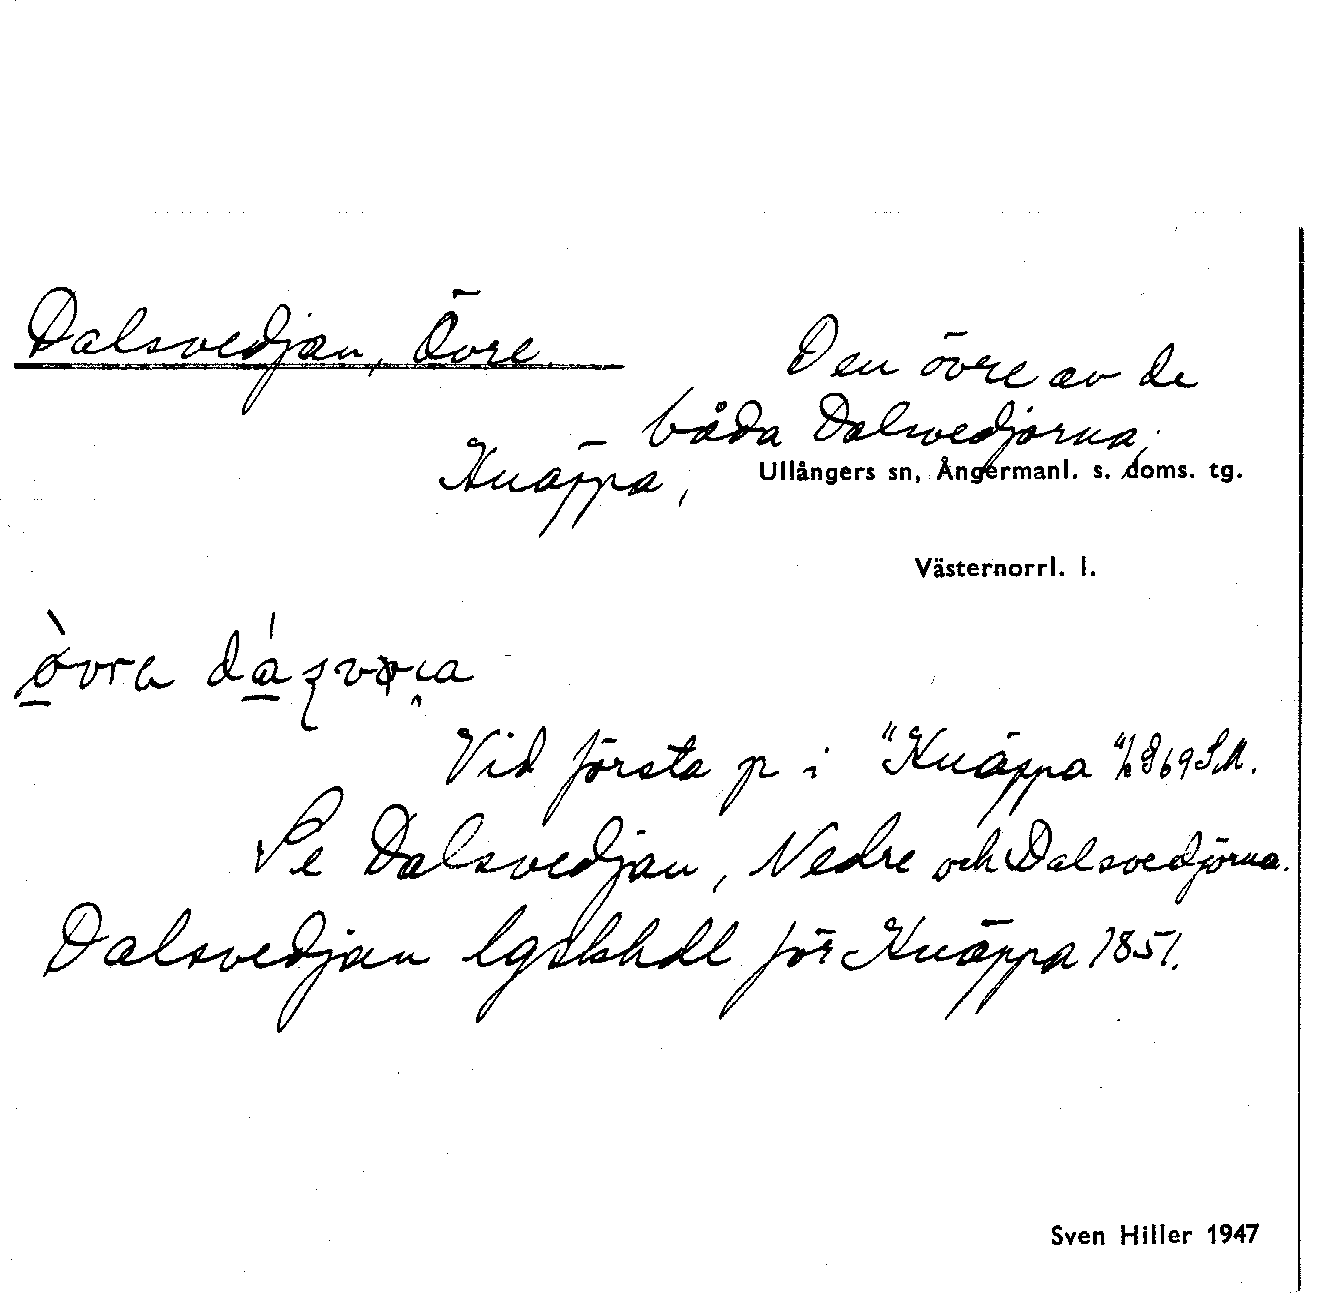 Dalsvedjan, Övre.
Den övre av de
båda Dalsvedjorna,
Knäppa,
Ullångers sn, Ångermanl. s. doms. tg.
Västernorrl. l.
Vid första p i "Knäppa"
Se Dalsvedjan, Nedre och Dalsvedjorna.
Dalsvedjan lgskhdl för Knäppa 1851.
Sven Hiller 1947